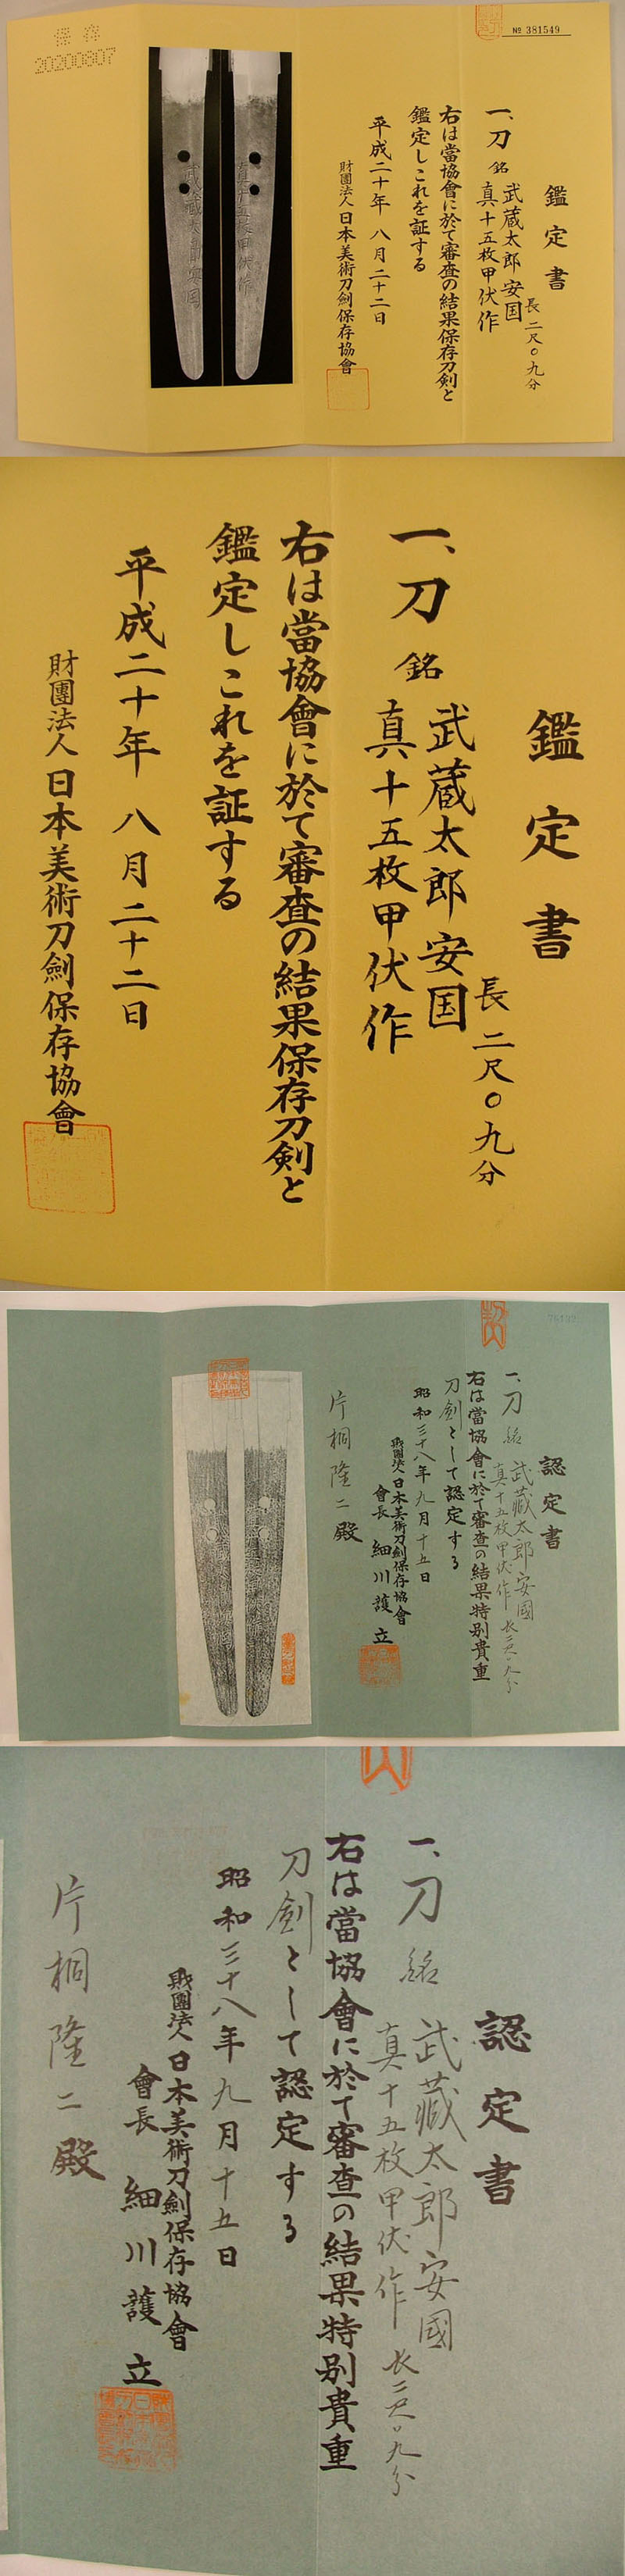 保存
20200807
№ 381549
鑑定書
一、刀 銘 武蔵太郎安国
真十五枚甲伏作
長二尺〇九分
右は當協會に於て審査の結果保存刀剣と
鑑定しこれを証する
平成二十年 八月二十二日
財團法人 日本美術刀劍保存協會
武蔵太郎安国
真十五枚甲伏作
鑑定書
一、刀 銘 武蔵太郎安国
真十五枚甲伏作
長二尺〇九分
右は當協會に於て審査の結果保存刀剣と
鑑定しこれを証する
平成二十年 八月二十二日
財團法人 日本美術刀劍保存協會
認定書
一、刀 銘 武蔵太郎安國
真十五枚甲伏作 長二尺〇九分
右は當協會に於て審査の結果特別貴重
刀劍として認定する
昭和三十八年九月十五日
財團法人 日本美術刀劍保存協會
會長 細川護立
片桐隆二殿
認定書
一、刀 銘 武蔵太郎安國
真十五枚甲伏作 長二尺〇九分
右は當協會に於て審査の結果特別貴重
刀劍として認定する
昭和三十八年九月十五日
財團法人 日本美術刀劍保存協會
會長 細川護立
片桐隆二殿